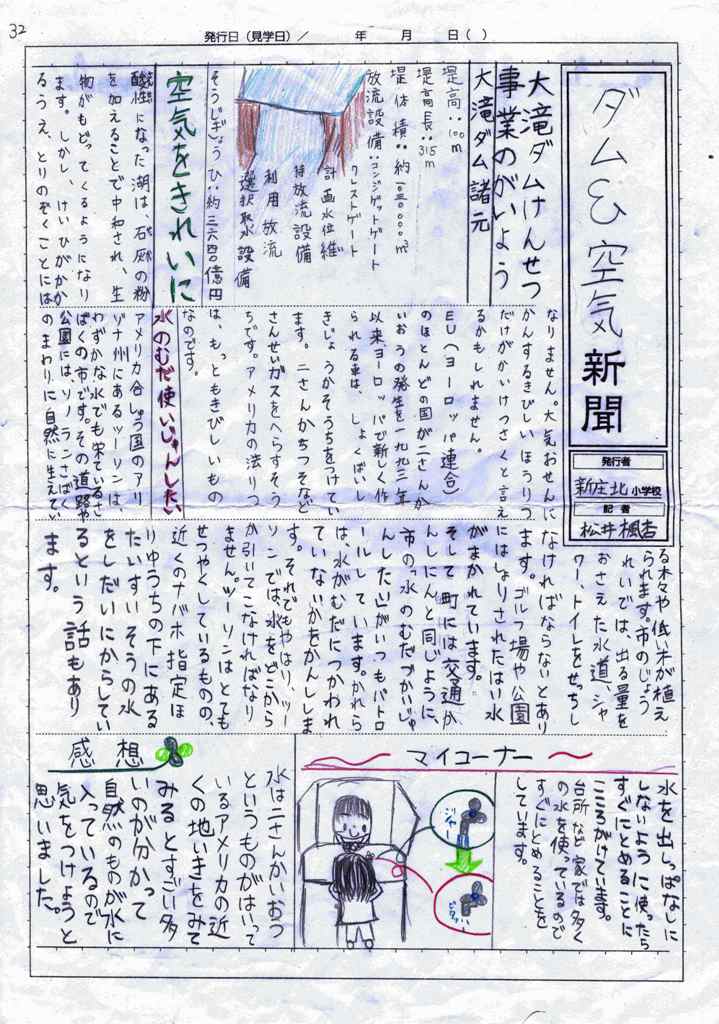 32
発行日(見学日)/ 年 月 日( )
ダム&空気新聞
発行者
新庄北小学校
記者
松井楓杏
大滝ダムけんせつ
事業のがいよう
大滝ダム諸元
堤高:100m
堤高長:315m
堤体積:約一〇三〇〇〇〇m³
放流設備:コンジゲットゲート
クレストゲート
計画水位維
持放流設備
利用放流
選択取水設備
そうじぎょうひ:約三六四〇億円
空気をきれいに
酸性になった湖は、石灰の粉
を加えることで中和され、生
物がもどってくるようになり
ます。しかし、けいひがかか
るうえ、とりのぞくことには
なりません。大気おせんに
かんするきびしいほうりつ
だけがかいけつさくと言え
るかもしれません。
EU(ヨーロッパ連合)
のほとんどの国が二さんか
いおうの発生を一九九三年
以来、ヨーロッパで新しく作
られる車は、しょくばいし
きじょうかそうちをつけてい
ます。二さんかちっそなど
さんせいガスをへらすそう
ちです。アメリカの法りつ
は、もっともきびしいもの
なのです。
水のむだ使いじゅんしたい
アメリカ合しゅう国のアリ
ゾナ州にあるツーソンは、
わずかな水でも栄ているさ
ばくの市です。その道路や
公園にはソノランさばく
のまわりに自然に生えてい
る木々や低い木が植え
られます。市のじょう
れいでは、出る量を
おさえた水道、シャ
ワー、トイレをせっちし
なければならないとあり
ます。ゴルフ場や公園
にはしょりされたはい水
がまかれています。
そして町には交通か
んしにんと同じように、
市の「水のむだづかいじゅ
んしたい」がいつもパトロ
ールしています。かれら
は、水がむだにつかわれ
ていないかをかんししま
す。それでもやはり、ツー
ソンでは水をどこから
か引いてこなければなり
ません。ツーソンはとても
せつやくしているものの、
近くのナバホ指定ほ
りゅうちの下にある
たいすいそうの水
をしだいにからしてい
るという話もあり
ます。
マイコーナー
水を出しっぱなしに
しないように使ったら
すぐにとめることに
こころがけています。
台所など家では多く
の水を使っているので
すぐにとめることを
しています。
ジャー
ピタッ!!
感想
水は二さんかいおう
というものがはいって
いるアメリカの近
くの地いきをみて
みるとすごい多
いのが分かって
自然のものが水に
入っているので
気をつけようと
思いました。